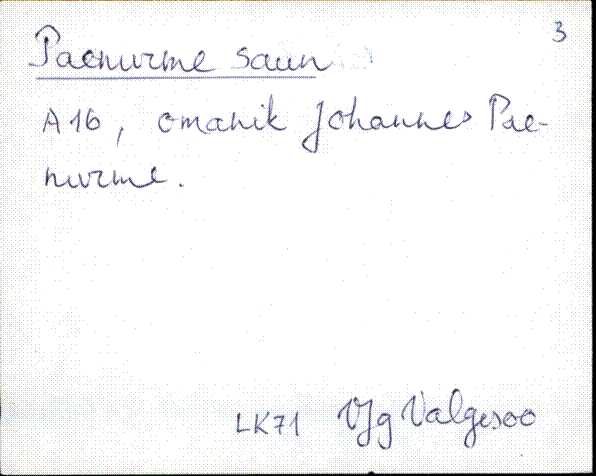 3
Paenurme saun
A16, omanik Johannes Pae-
nurme.
LK71 Vjg Valgesoo